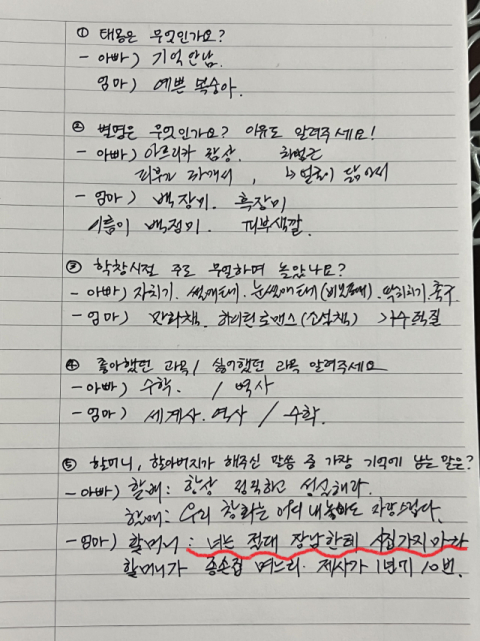 ① 태몽은 무엇인가요?
- 아빠) 기억안남.
엄마) 예쁜 복숭아.
② 별명은 무엇인가요? 이유도 알려주세요!
- 아빠) 아프리카 깜상. 최범근
피부가 까매서, ↳ 얼굴이 닮아서
- 엄마) 백장미. 흑장미
이름이 백정미. 피부색깔.
③ 학창시절 주로 무얼하며 놀았나요?
- 아빠) 자치기. 썰매타기. 눈썰매타기(비료푸대). 딱지치기. 축구
- 엄마) 만화책. 하이틴로맨스(소설책) 가수덕질
④ 좋아했던 과목/ 싫어했던 과목 알려주세요
- 아빠) 수학. / 역사
- 엄마) 세계사. 역사 / 수학.
⑤ 할머니, 할아버지가 해주신 말씀 중 가장 기억에 남는 말은?
- 아빠) 할배: 항상 정직하고 성실해라.
할매: 우리 창화는 어디 내놓아도 자랑스럽다.
- 엄마) 할머니: 너는 절대 장남한테 시집가지마라
할머니가 종손집 며느리. 제사가 1년기 10번.